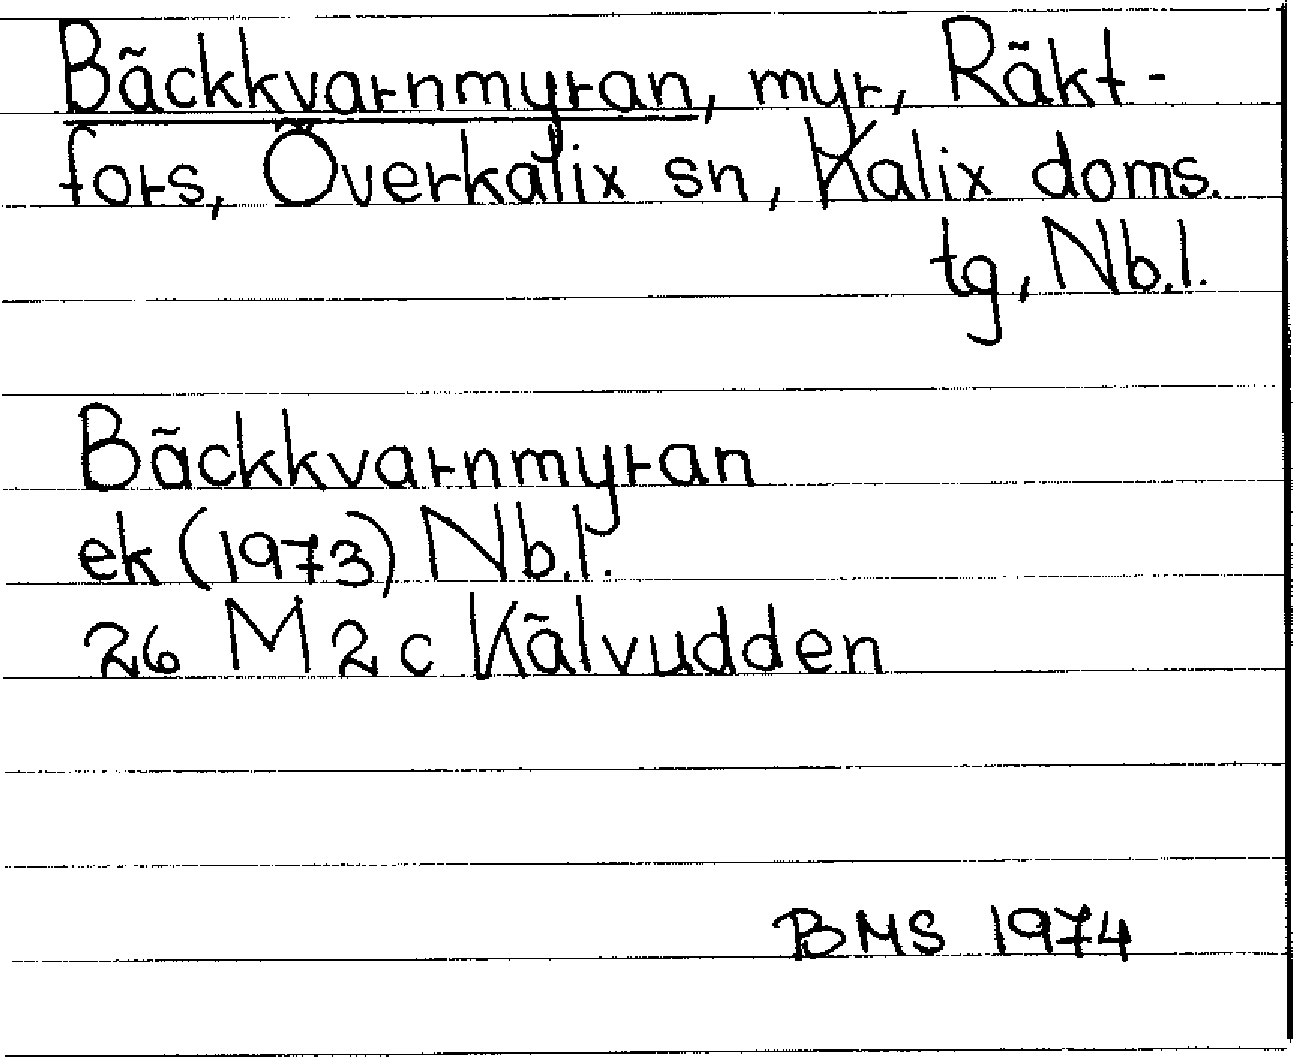 Bäckkvarnmyran, myr, Räkt-
fors, Överkalix sn, Kalix doms.
tg, Nb.l.
Bäckkvarnmyran
ek (1973) Nb.l.
26 M 2 c Kälvudden
BMS 1974